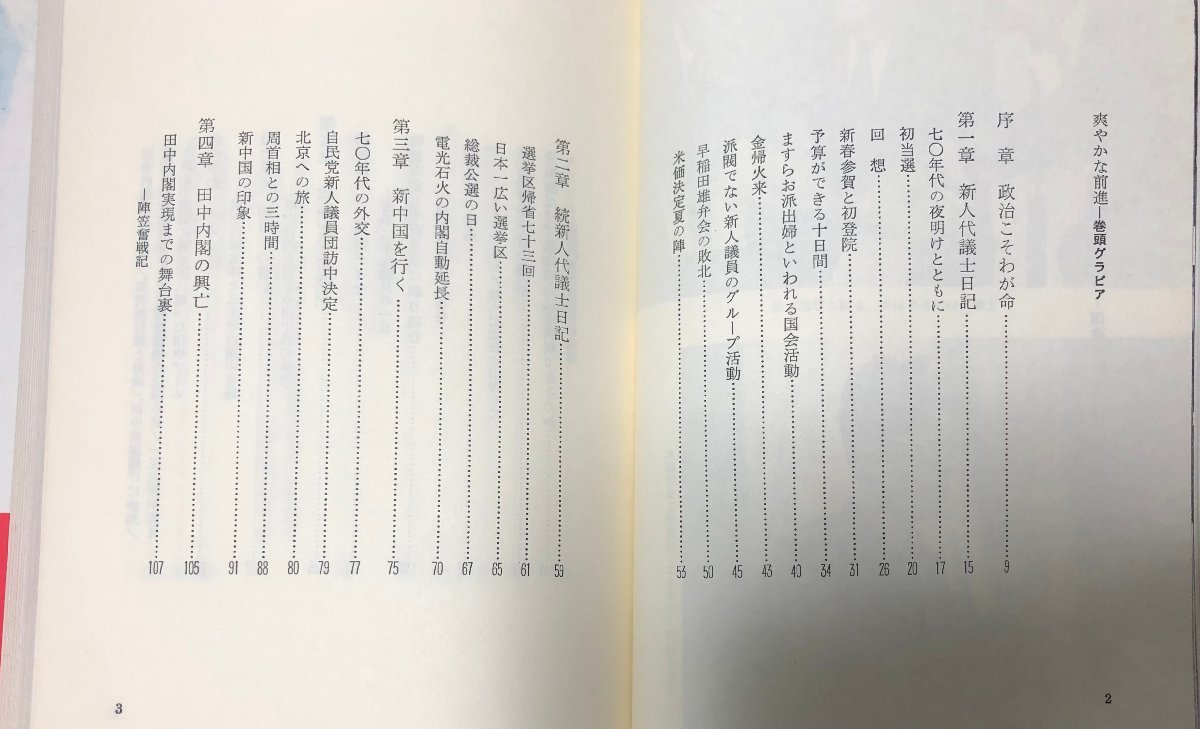 爽やかな前進―巻頭グラビア
序　章　政治こそわが命……9
第一章　新人代議士日記……15
七〇年代の夜明けとともに……17
初当選……20
回　想……26
新春参賀と初登院……31
予算ができる十日間……34
ますらお派出婦といわれる国会活動……40
金帰火来……43
派閥でない新人議員のグループ活動……45
早稲田雄弁会の敗北……50
米価決定夏の陣……53
2
第二章　続新人代議士日記……59
選挙区帰省七十三回……61
日本一広い選挙区……65
総裁公選の日……67
電光石火の内閣自動延長……70
第三章　新中国を行く……75
七〇年代の外交……77
自民党新人議員団訪中決定……79
北京への旅……80
周首相との三時間……88
新中国の印象……91
第四章　田中内閣の興亡……105
田中内閣実現までの舞台裏……107
―陣笠奮戦記
3